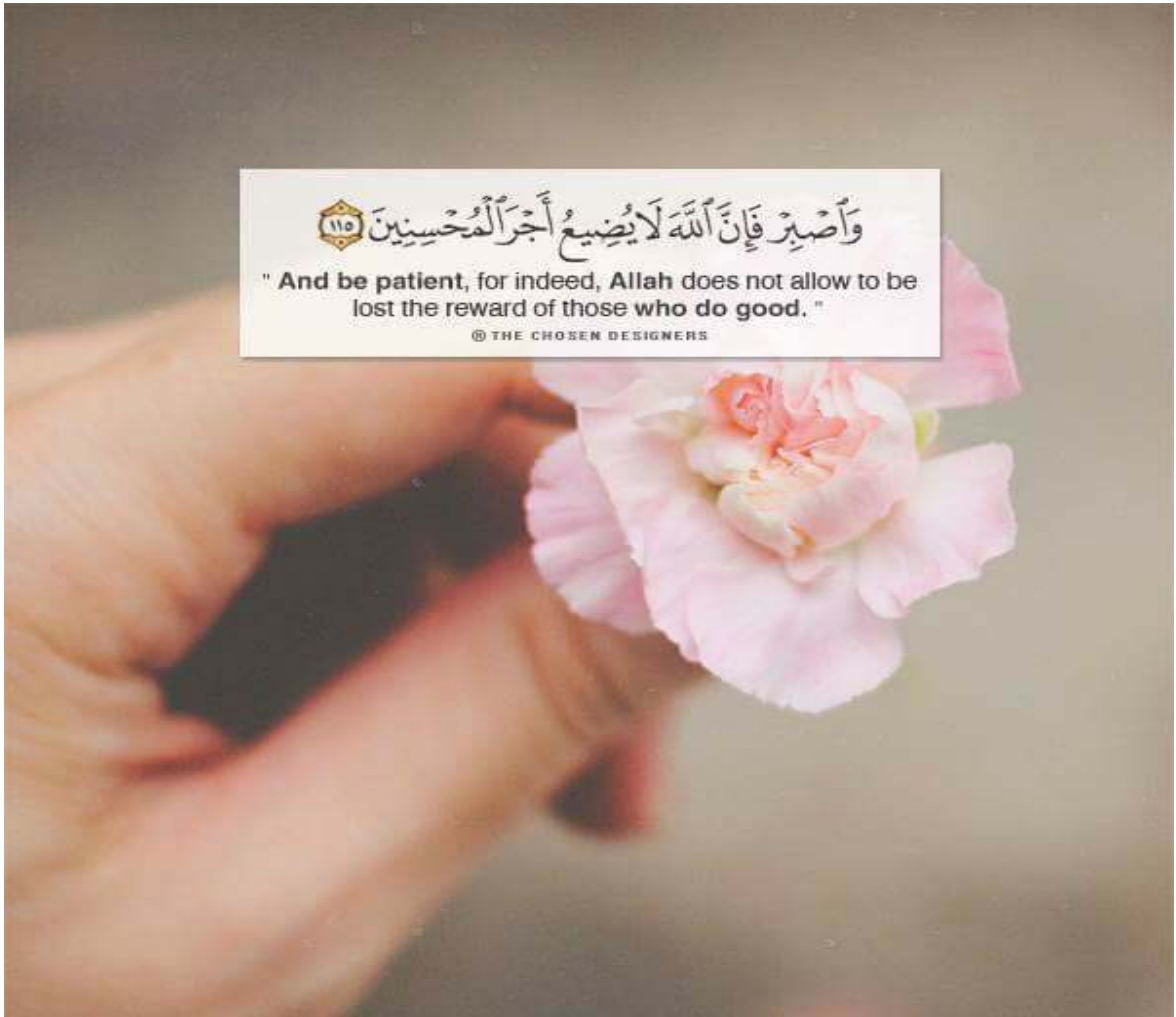 وَٱصْبِرْ فَإِنَّ ٱللَّهَ لَا يُضِيعُ أَجْرَ ٱلْمُحْسِنِينَ ١١٥
" And be patient, for indeed, Allah does not allow to be
lost the reward of those who do good. "
® THE CHOSEN DESIGNERS